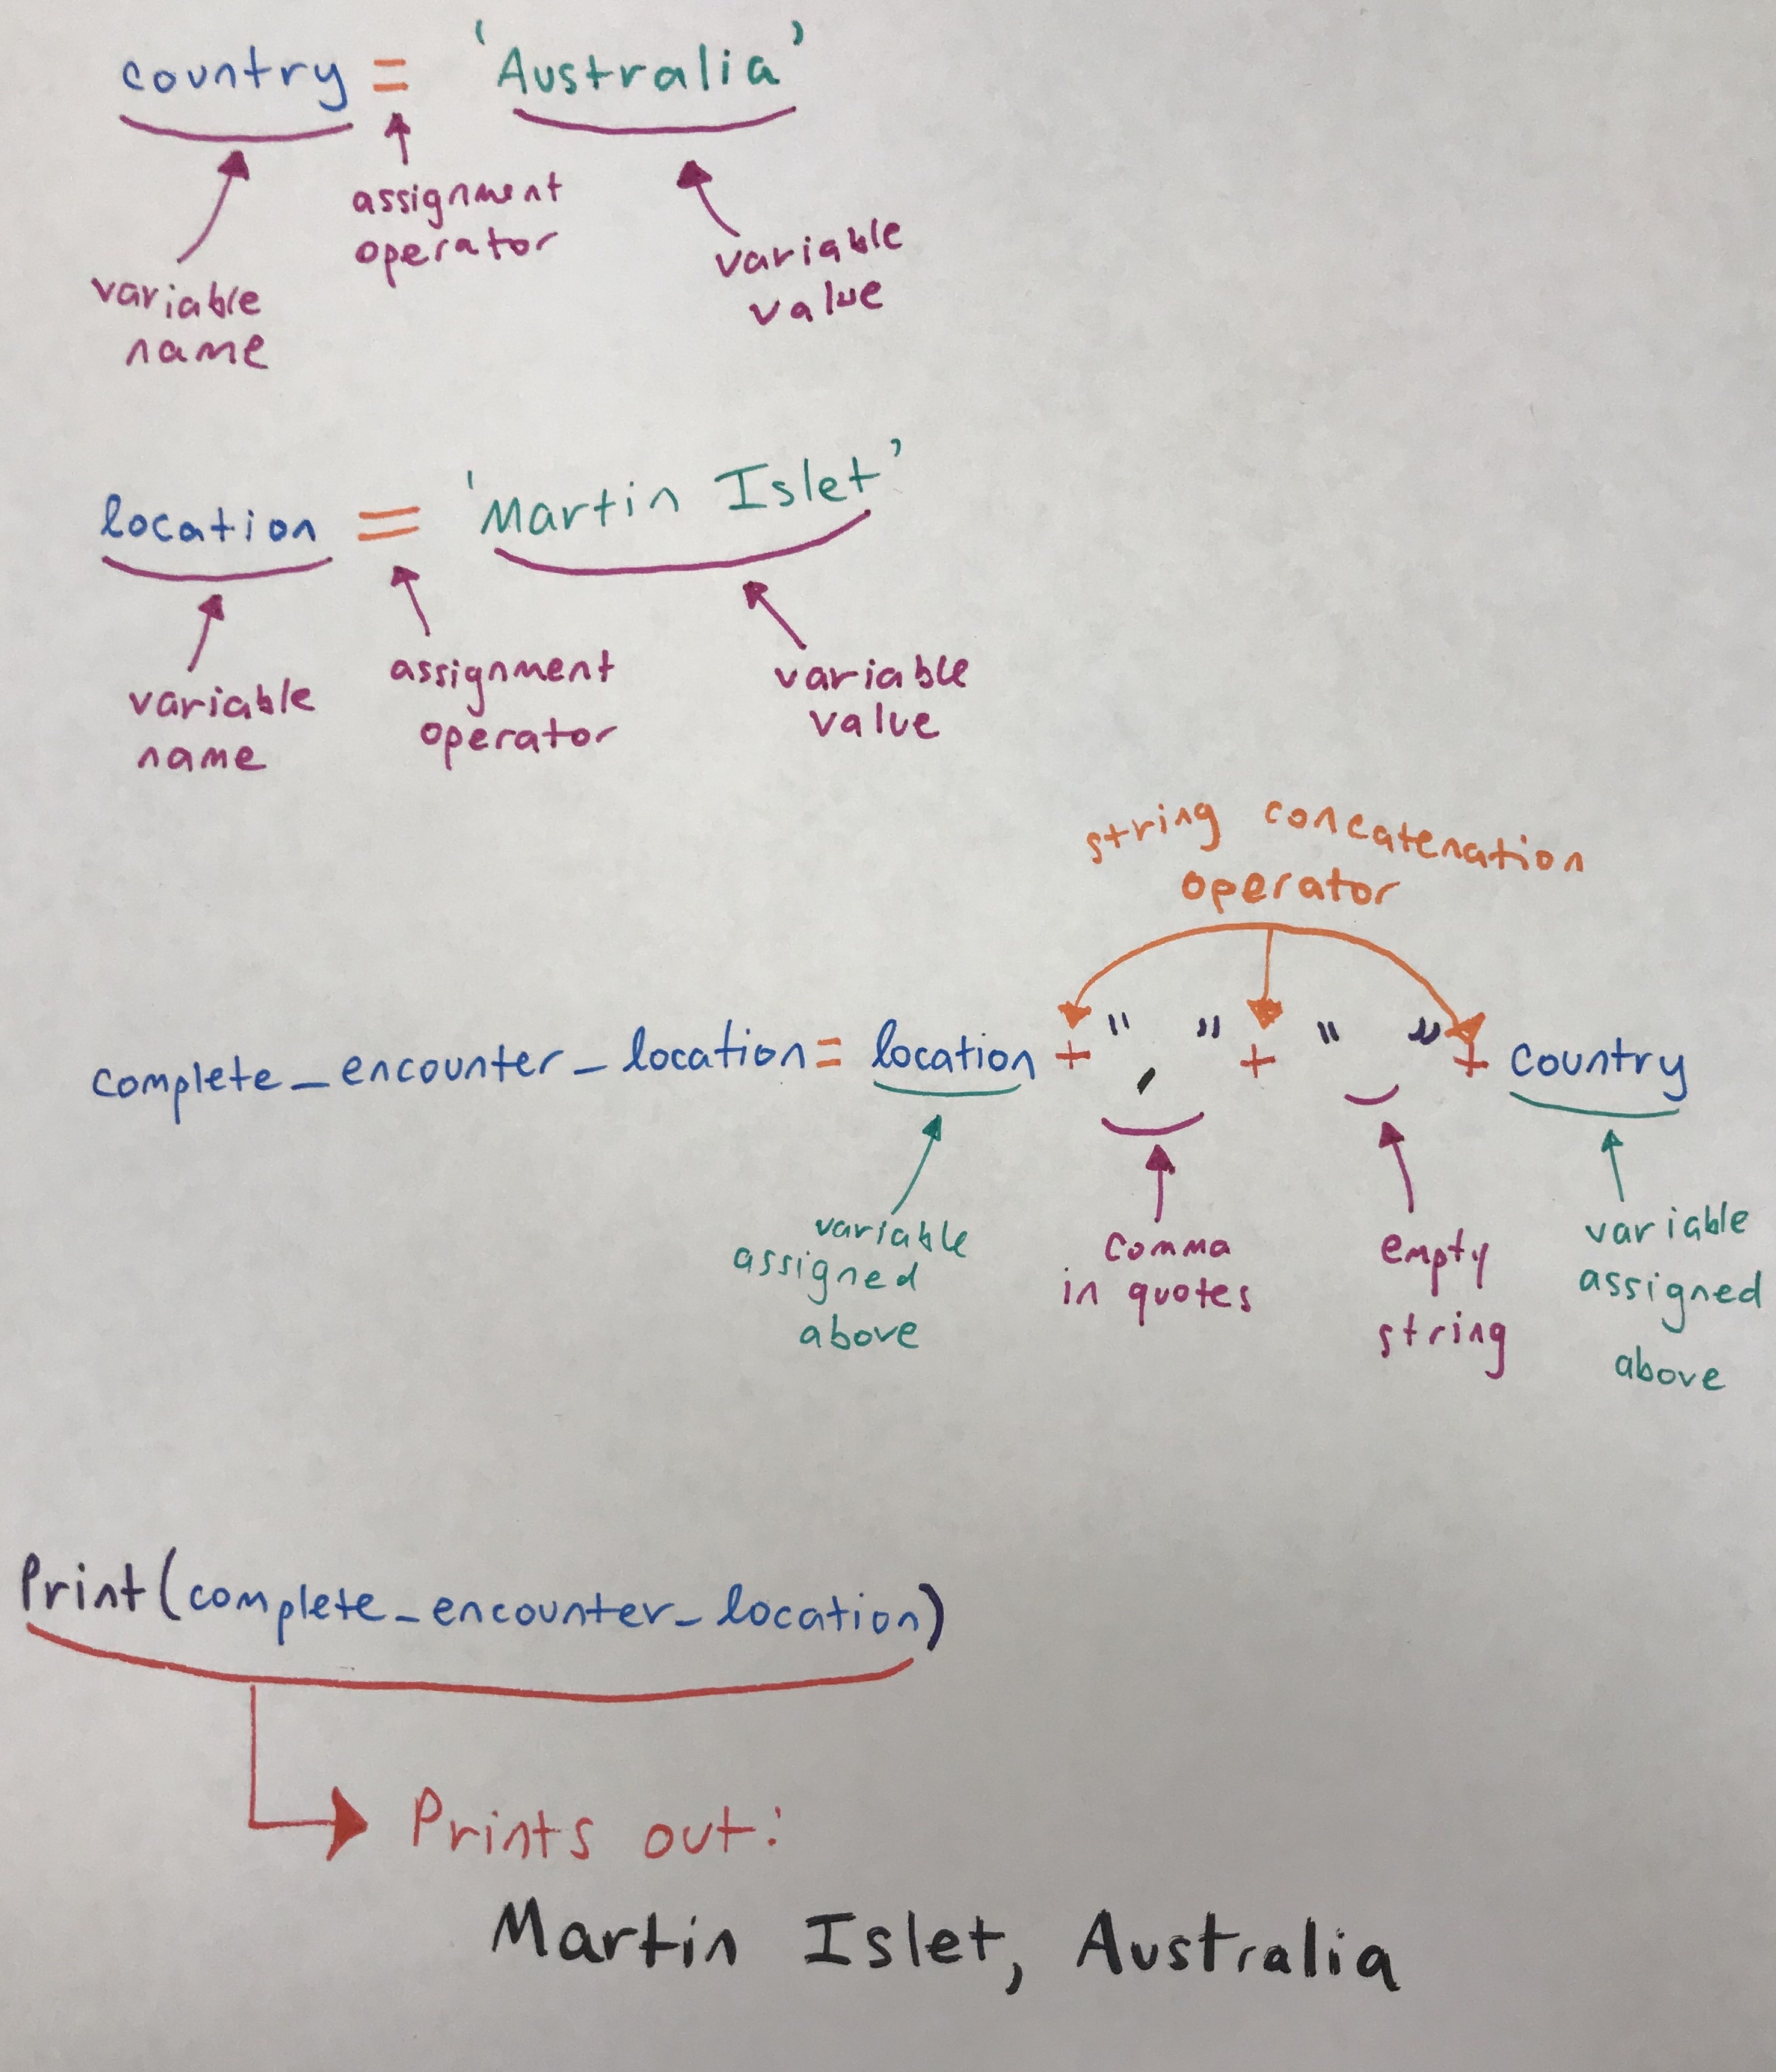 country = 'Australia'
variable name
assignment operator
variable value
location = 'Martin Islet'
variable name
assignment operator
variable value
string concatenation
operator
complete_encounter_location = location + "," + " " + country
variable assigned above
comma in quotes
empty string
variable assigned above
Print(complete_encounter_location)
Prints out:
Martin Islet, Australia